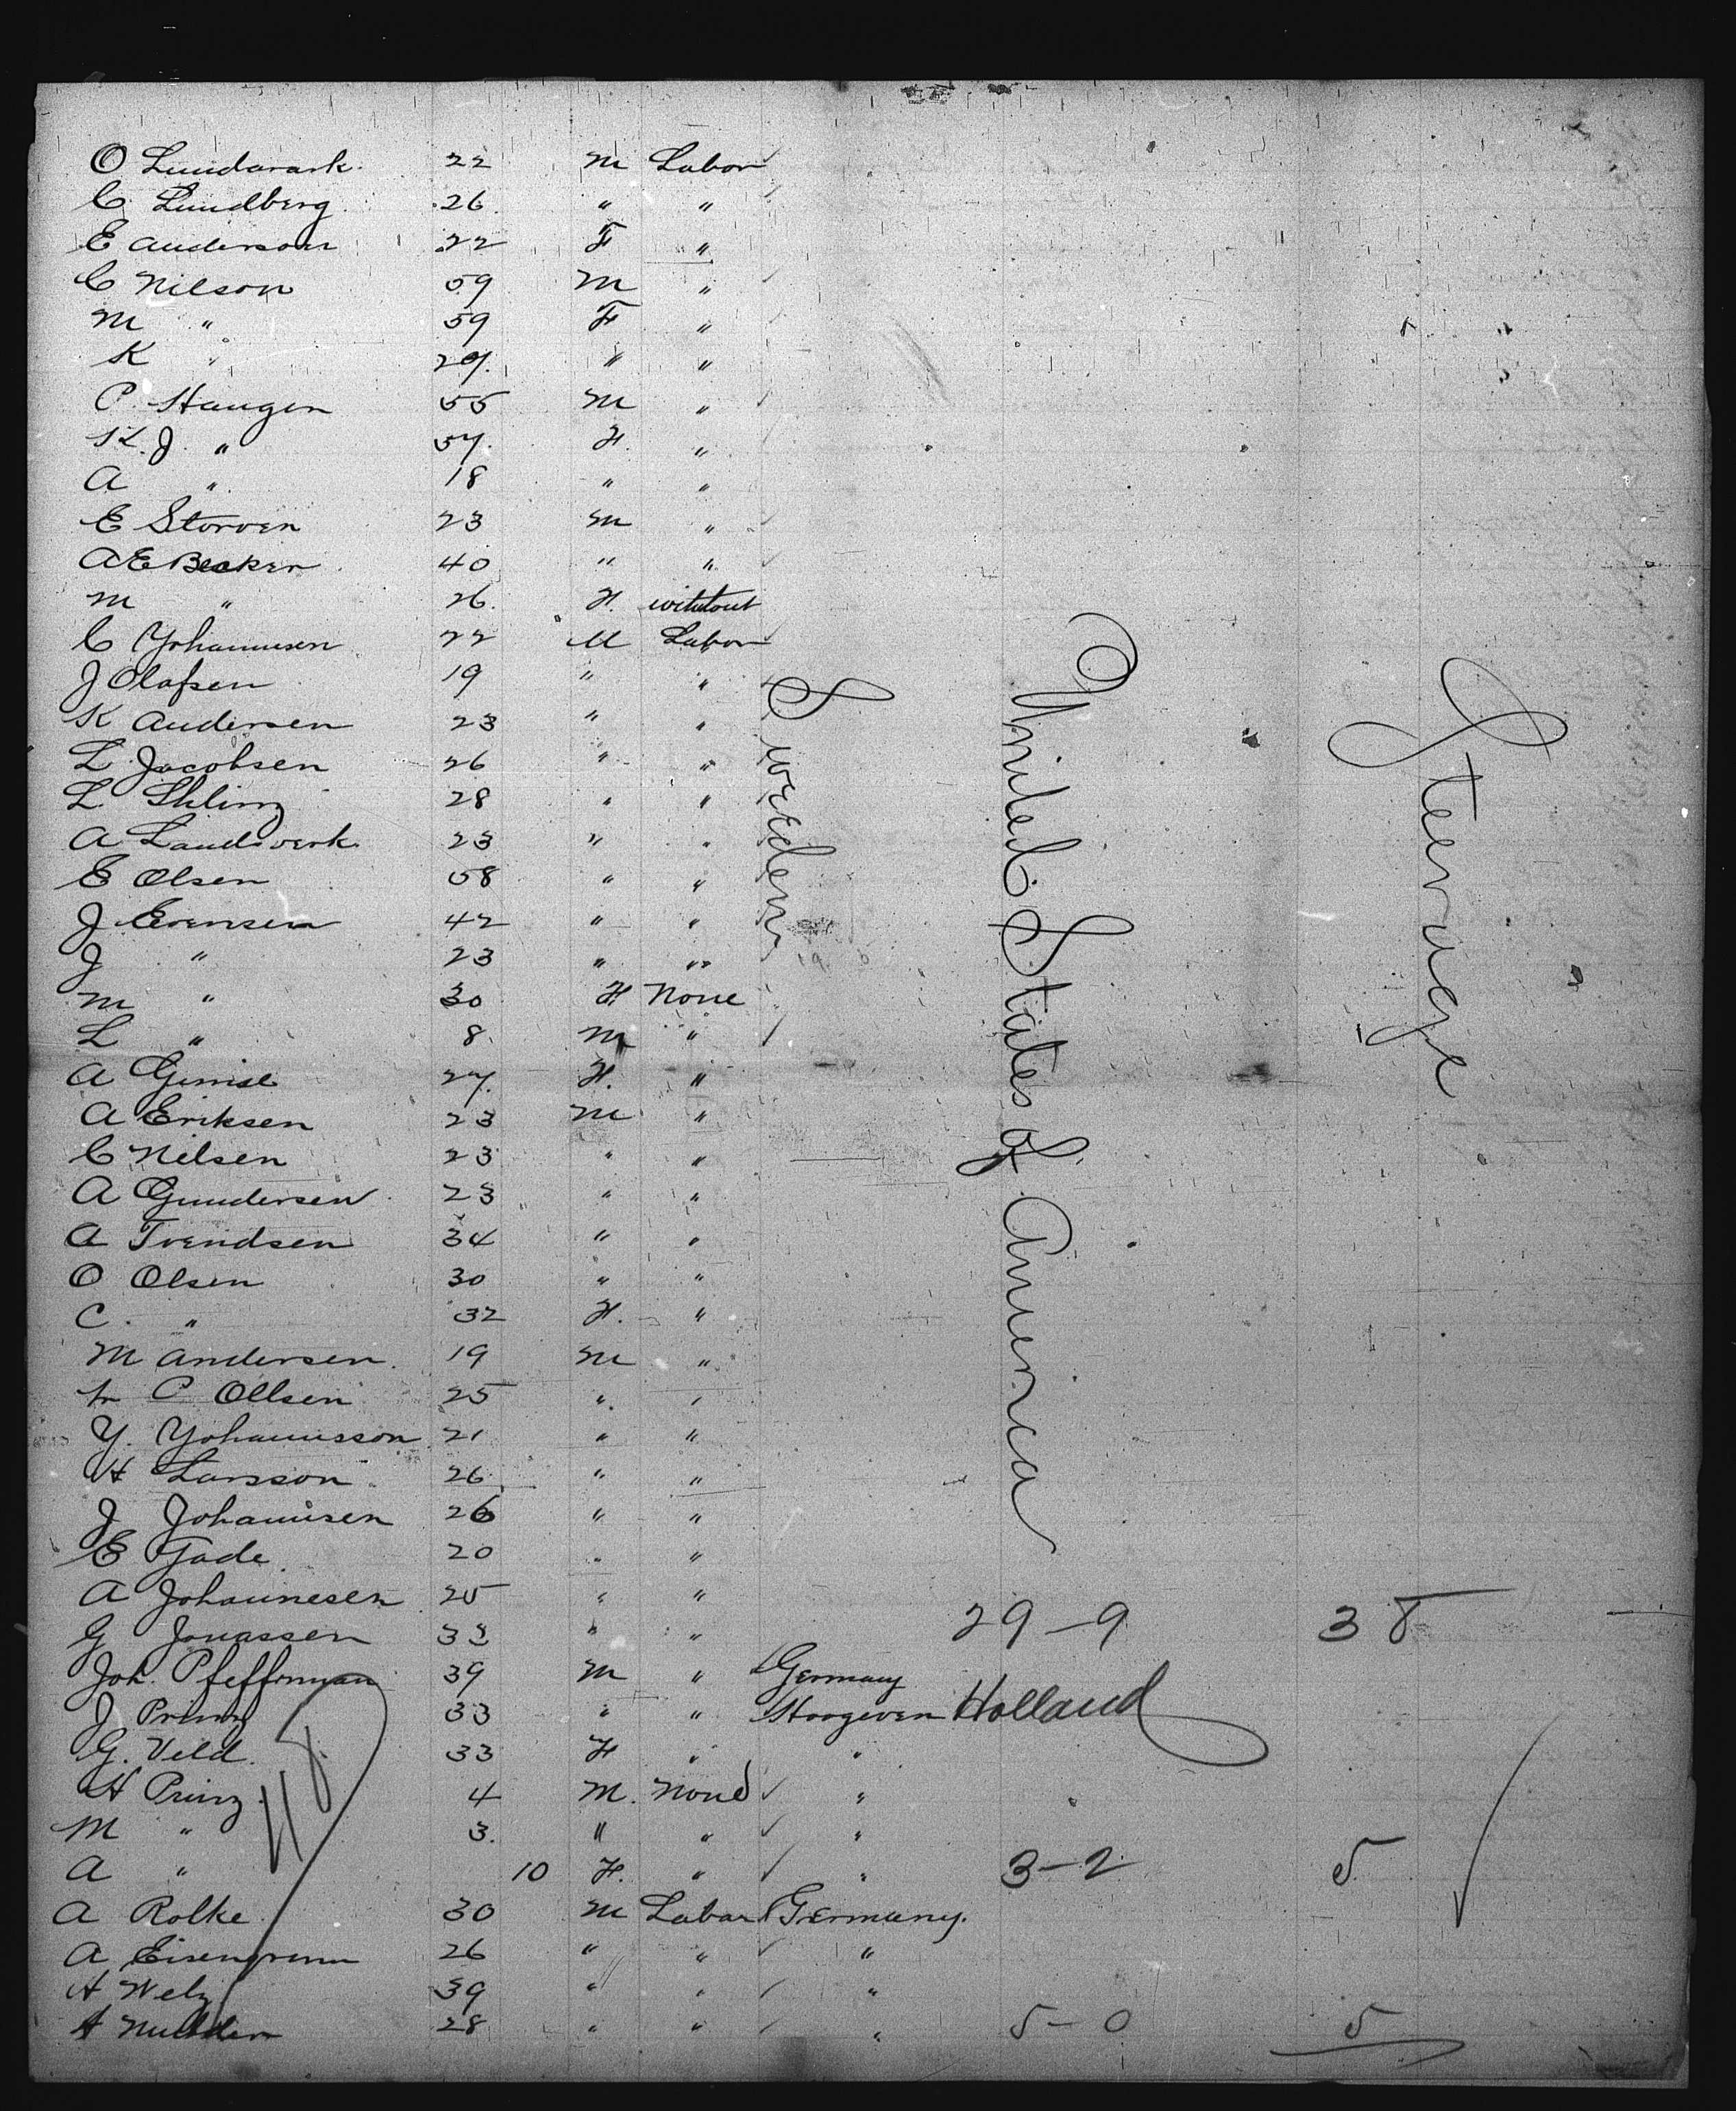 O Lundavark 22 M Labor
C Lundberg 26 " "
E Anderson 22 F "
C Nilson 59 M "
M " 59 F "
K " 27 " "
P. Haugen 55 M "
K. J. " 57. F. "
A " 18 " "
E Storven 23 M "
A E Becker 40 " "
M " 26. F. without
C Yohannesen 22 M Labor
J Olafsen 19 " "
K Andersen 23 " "
L Jacobsen 26 " "
L 28 " "
A Landsverk 23 " "
E Olsen 58 " "
J Evensen 42 " "
J " 23 " "
M " 30 F None
L " 8. M "
A Gimse 27. F. "
A Eriksen 23 M "
C Nilsen 23 " "
A Gundersen 23 " "
A Tvendsen 34 " "
O Olsen 30 " "
C. " 32 F. "
M Andersen. 19 M "
P Ollsen 25 " "
Y. Yohannsson 21 " "
H Larsson 26 " "
J Johannsen 26 " "
E Gade 20 " "
A Johannesen 25 " "
G Jonassen 33 " " 29-9 38
Sweden
United States of America
Steerage
Joh. Pfeffrman 39 M " Germany
J Prinz 33 " " Hoogeven Holland
G. Veld. 33 F " "
H Prinz. 4 M. None "
M " 3. " " "
A " 10 F. " " 3-2 5
A Rolke 30 M Labor Germany.
A 26 " " "
H Welz 39 " " "
A Mulder 28 " " " 5-0 5
48